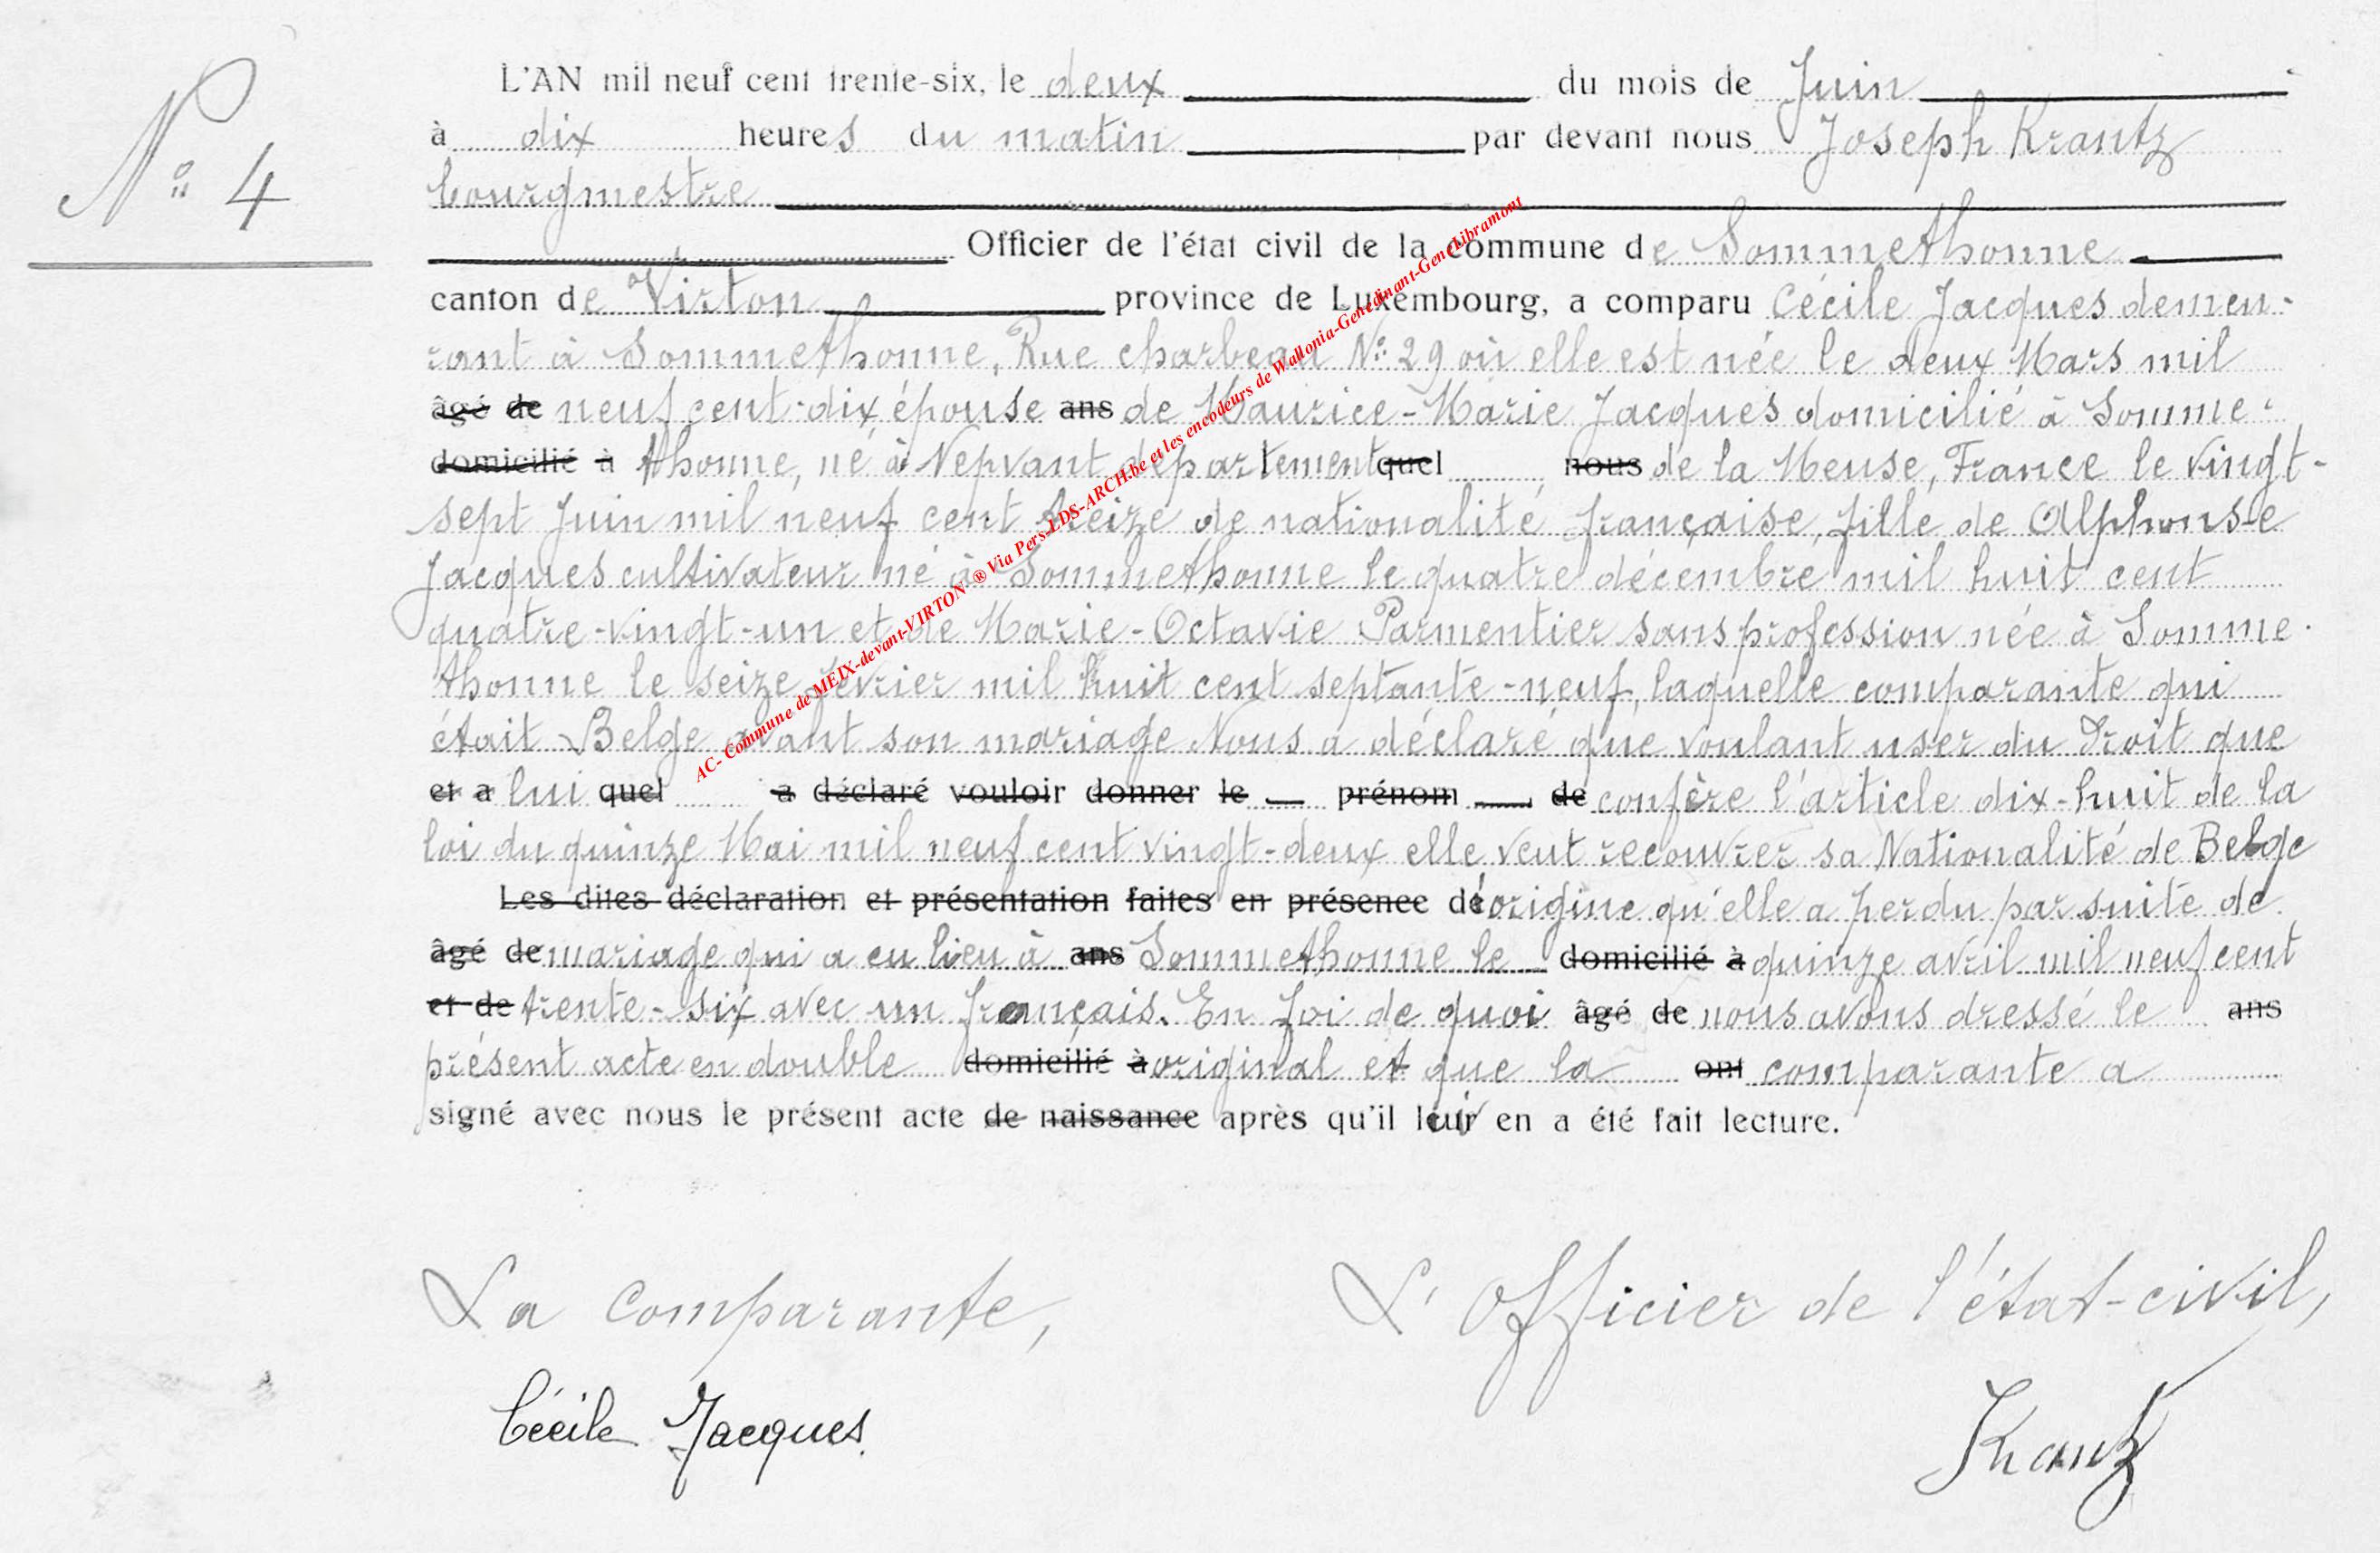 N° 4
L'AN mil neuf cent trente-six, le deux du mois de Juin
à dix heures du matin par devant nous Joseph Krantz
bourgmestre
Officier de l'état civil de la commune de Sommethonne
canton de Virton province de Luxembourg, a comparu Cécile Jacques demeu-
rant à Sommethonne, Rue charbeau N° 29 où elle est née le deux Mars mil
âgé de neuf cent-dix, épouse ans de Maurice-Marie Jacques domicilié à Somme-
domicilié à thonne, né à Nepvant département quel nous de la Meuse, France le vingt-
sept Juin mil neuf cent treize de nationalité française, fille de Alphonse
Jacques cultivateur né à Sommethonne le quatre décembre mil huit cent
quatre-vingt-un et de Marie-Octavie Parmentier sans profession née à Somme-
thonne le seize février mil huit cent septante-neuf, laquelle comparante qui
était Belge avant son mariage Nous a déclaré que voulant user du Droit que
et a lui quel a déclaré vouloir donner le prénom de confère l'article dix-huit de la
loi du quinze Mai mil neuf cent vingt-deux elle veut recouvrer sa Nationalité de Belge
Les dites déclaration et présentation faites en présence d'origine qu'elle a perdu par suite de
âgé de mariage qui a eu lieu à ans Sommethonne le domicilié à quinze avril mil neuf cent
et de trente-six avec un français. En foi de quoi âgé de nous avons dressé le ans
présent acte en double domicilié à original et que la ont comparante a
signé avec nous le présent acte de naissance après qu'il lui en a été fait lecture.
La comparante, L'Officier de l'état-civil,
Cécile Jacques Krantz
AC- Commune de MEIX-devant-VIRTON ® Via Pers-LDS-ARCH.be et les encodeurs de Wallonia-Genedinant-GeneLibramont